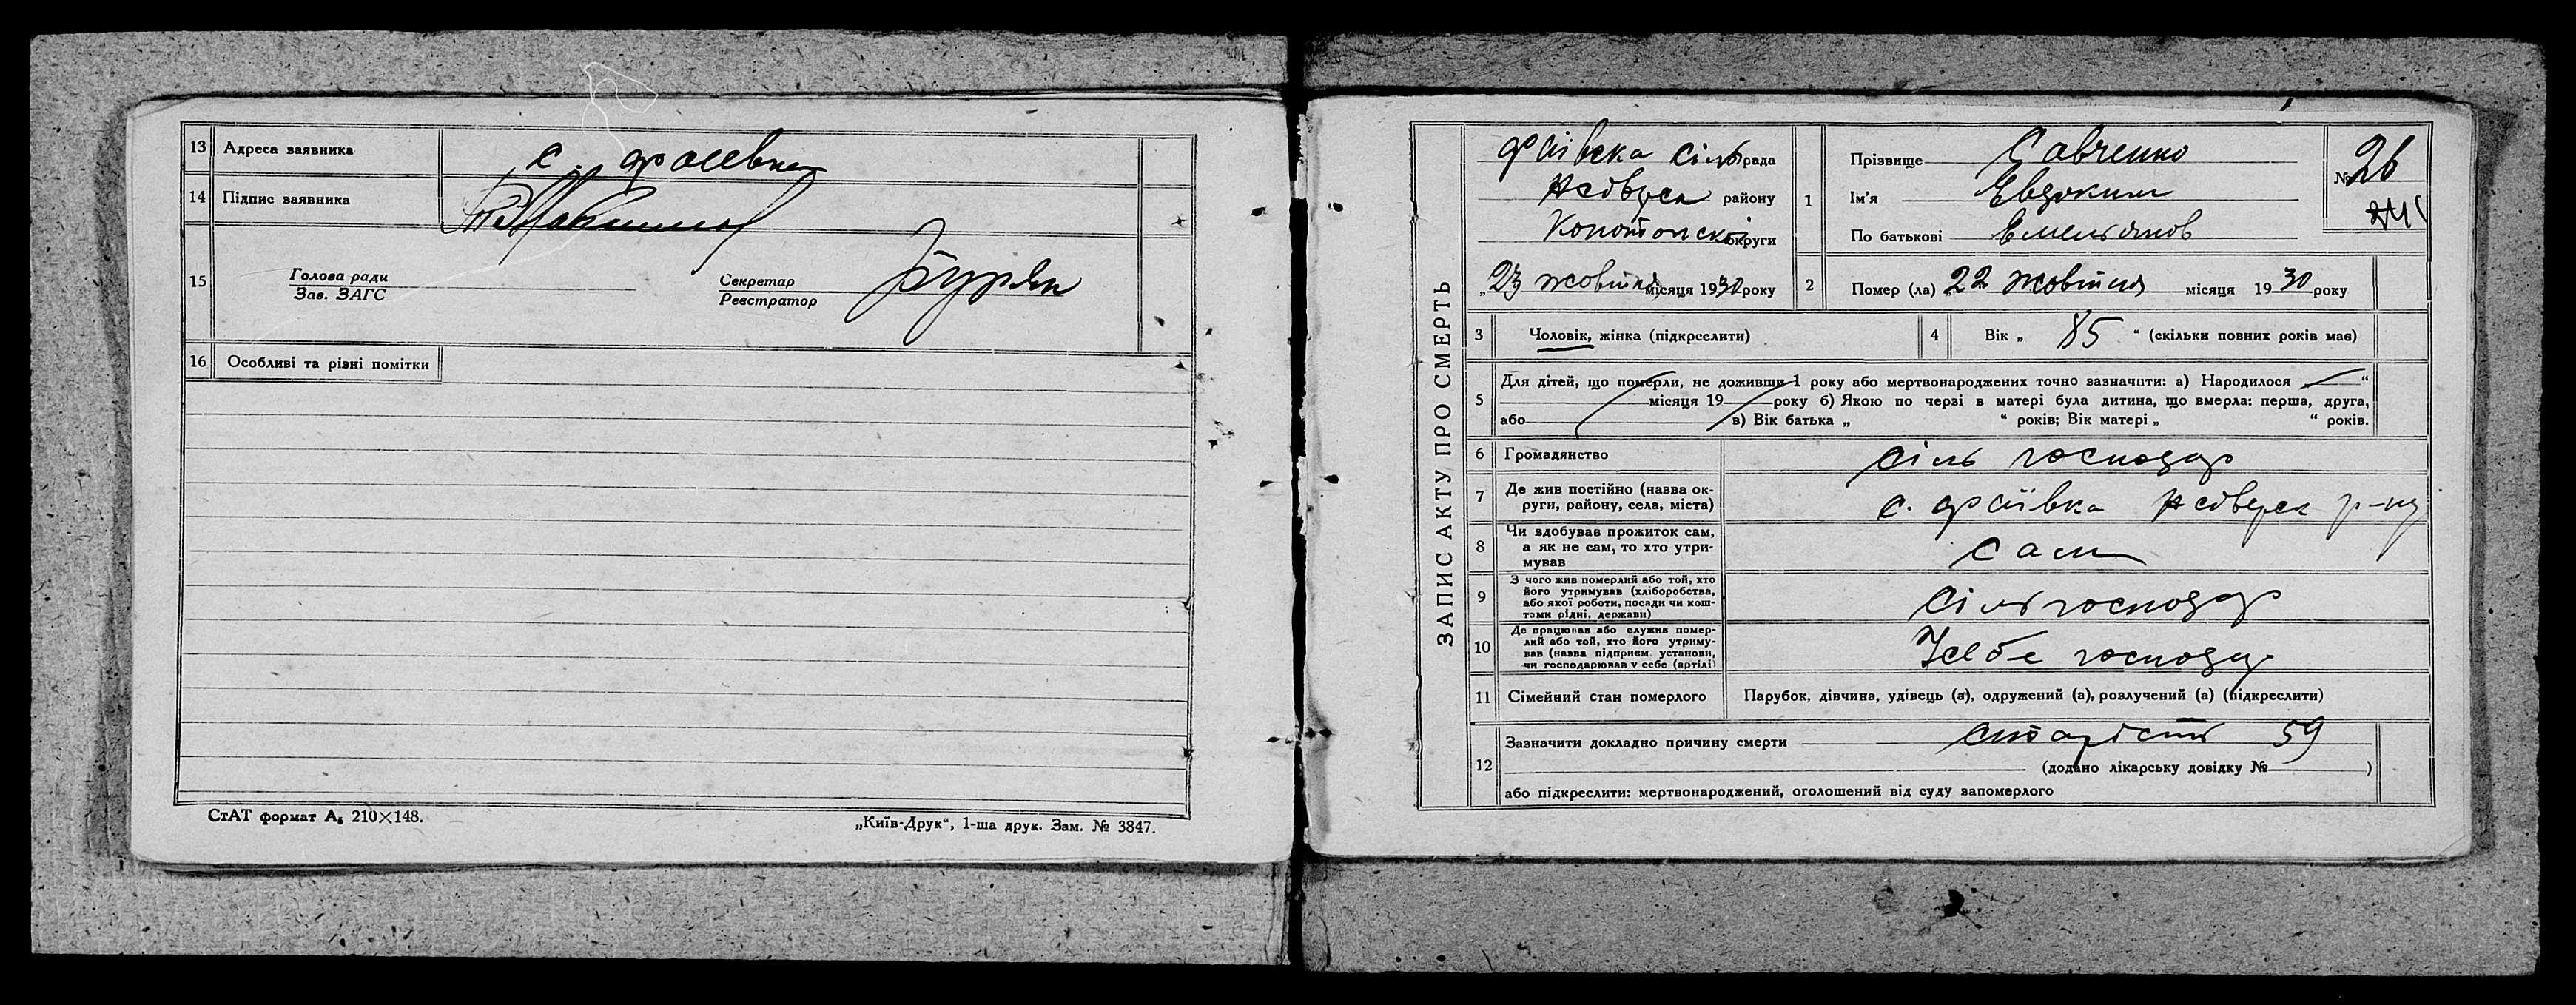 13 Адреса заявника с. Фаєвка
14 Підпис заявника
15 Голова ради Секретар Буряк
Зав. ЗАГС Реєстратор
16 Особливі та різні помітки
СтАТ формат А₅ 210×148.
„Київ-Друк“, 1-ша друк. Зам. № 3847.
ЗАПИС АКТУ ПРО СМЕРТЬ
Фаївска сільрада
району
Конотопської округи
„23 жовтня місяця 1930 року
1 Прізвище Савченко
Ім'я Евдоким
По батькові Емельянов
№ 26
2 Помер (ла) „22 жовтня місяця 1930 року
3 Чоловік, жінка (підкреслити)
4 Вік „ 85 “ (скільки повних років має)
5 Для дітей, що померли, не доживши 1 року або мертвонароджених точно зазначити: а) Народилося “
місяця 19 року б) Якою по черзі в матері була дитина, що вмерла: перша, друга,
або в) Вік батька „ “ років; Вік матері „ “ років.
6 Громадянство сіль господар
7 Де жив постійно (назва ок-
руги, району, села, міста) с. Фаївка р-ну
8 Чи здобував прожиток сам,
а як не сам, то хто утри-
мував сам
9 З чого жив померлий або той, хто
його утримував (хліборобства,
або якої роботи, посади чи кош-
тами рідні, держави) сільгосподар
10 Де працював або служив помер-
лий або той, хто його утриму-
вав (назва підприєм. установи,
чи господарював у себе (артілі) Усебе господар
11 Сімейний стан померлого Парубок, дівчина, удівець (а), одружений (а), розлучений (а) (підкреслити)
12 Зазначити докладно причину смерти старість 59
(додано лікарську довідку № )
або підкреслити: мертвонароджений, оголошений від суду запомерлого